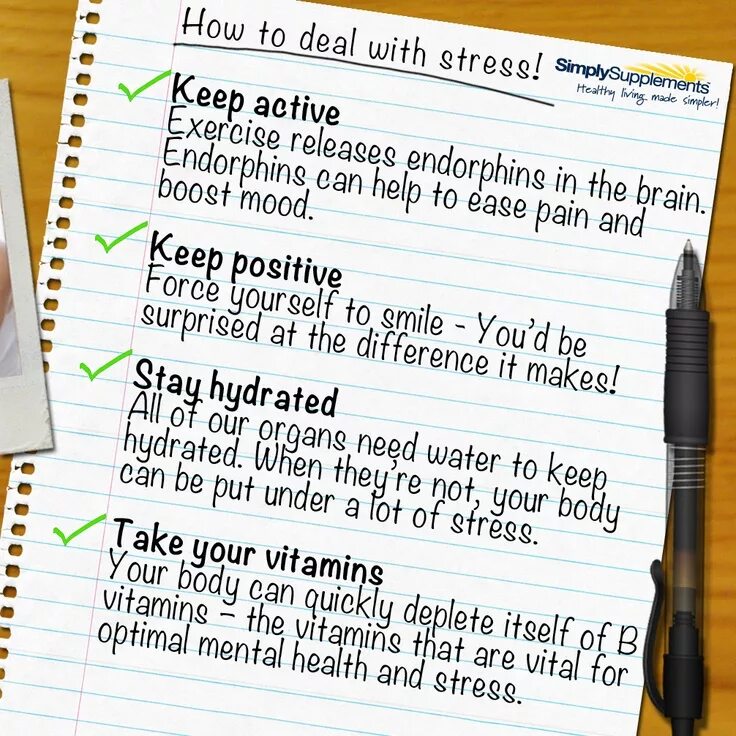 How to deal with stress!
SimplySupplements
Healthy living made simpler!
Keep active
Exercise releases endorphins in the brain.
Endorphins can help to ease pain and
boost mood.
Keep positive
Force yourself to smile - You'd be
surprised at the difference it makes!
Stay hydrated
All of our organs need water to keep
hydrated. When they're not, your body
can be put under a lot of stress.
Take your vitamins
Your body can quickly deplete itself of B
vitamins – the vitamins that are vital for
optimal mental health and stress.